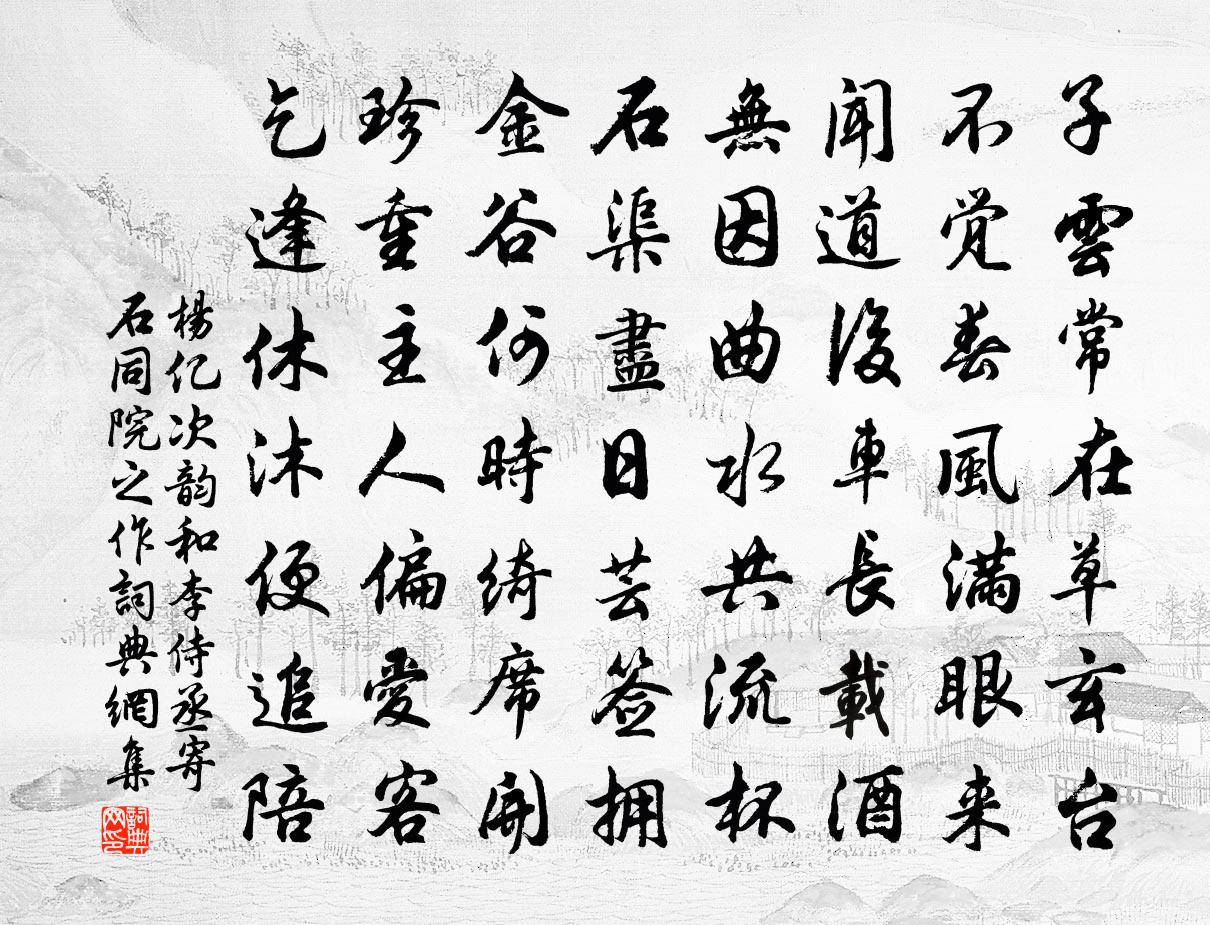 子雲常在草玄台
不覚春風滿眼来
聞道後車長載酒
無因曲水共流杯
石渠盡日芸签拥
金谷何時绮席開
珍重主人偏愛客
乞逢休沐便追陪
楊亿次韵和李侍丞寄
石同院之作詞典網集
詞典
网印